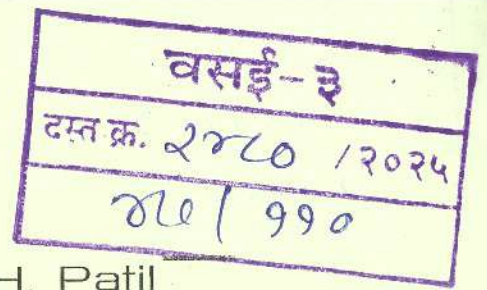 वसई-३
दस्त क्र. २४८० /२०२५
४७/ ११०
H. Patil